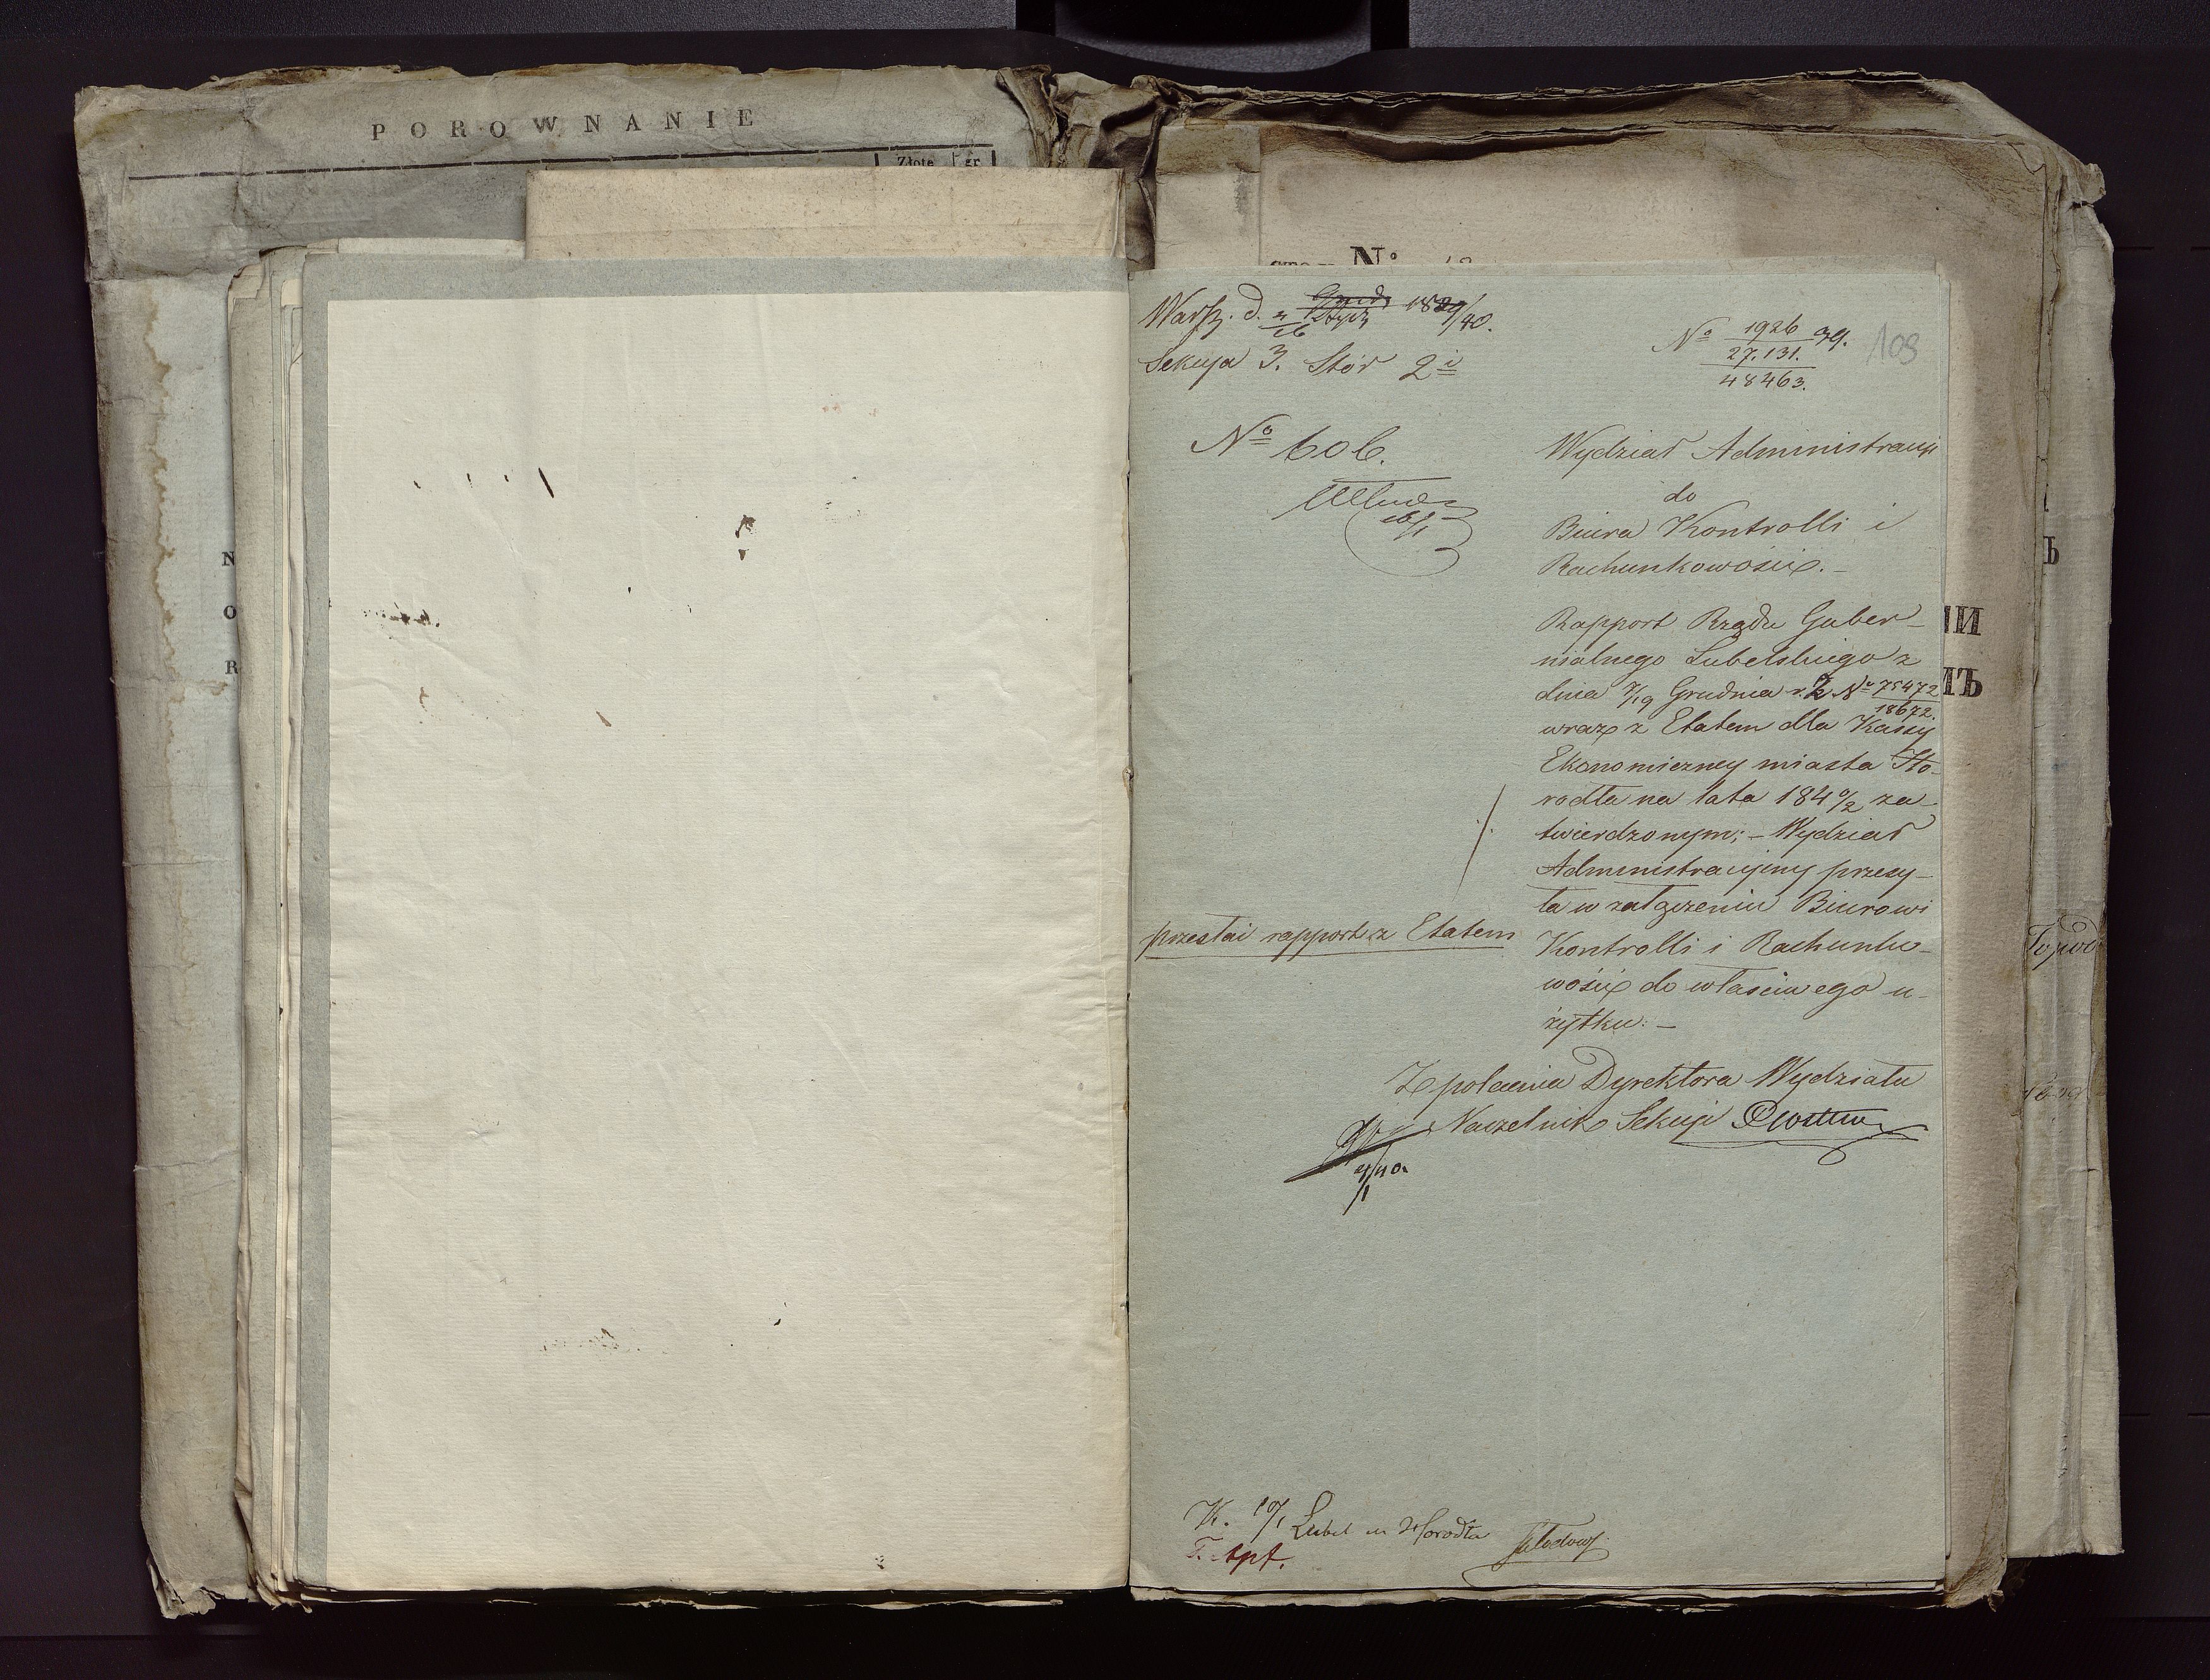 POROWNANIE
Złote gr.
N
O
R
Nº
Warsz. d. 4/16 Stycz 1839/40.
Sekcja 3. Stór 2i
Nº 1926 39.
27.131.
48463.
109
Nº 606.
16/1
Wydział Administracyi
do
Biura Kontrolli i
Rachunkowości.-
Rapport Rządu Guber-
nialnego Lubelskiego z
dnia 7/19 Grudnia r. z. Nº 75472
18672.
wraz z Etatem dla Kassy
Ekonomiczney miasta Ho-
rodła na lata 1840/2 za-
twierdzonym; - Wydział
Administracyiny przesy-
ła w załączeniu Biurowi
Kontrolli i Rachunko-
wości do właściwego u-
żytku. -
przesłai rapport z Etatem
Z polecenia Dyrektora Wydziału
Naczelnik Sekcyi
4/40
1
K. 19/1 Lubel m Horodła
ИИ
ИЪ
Ъ
Город